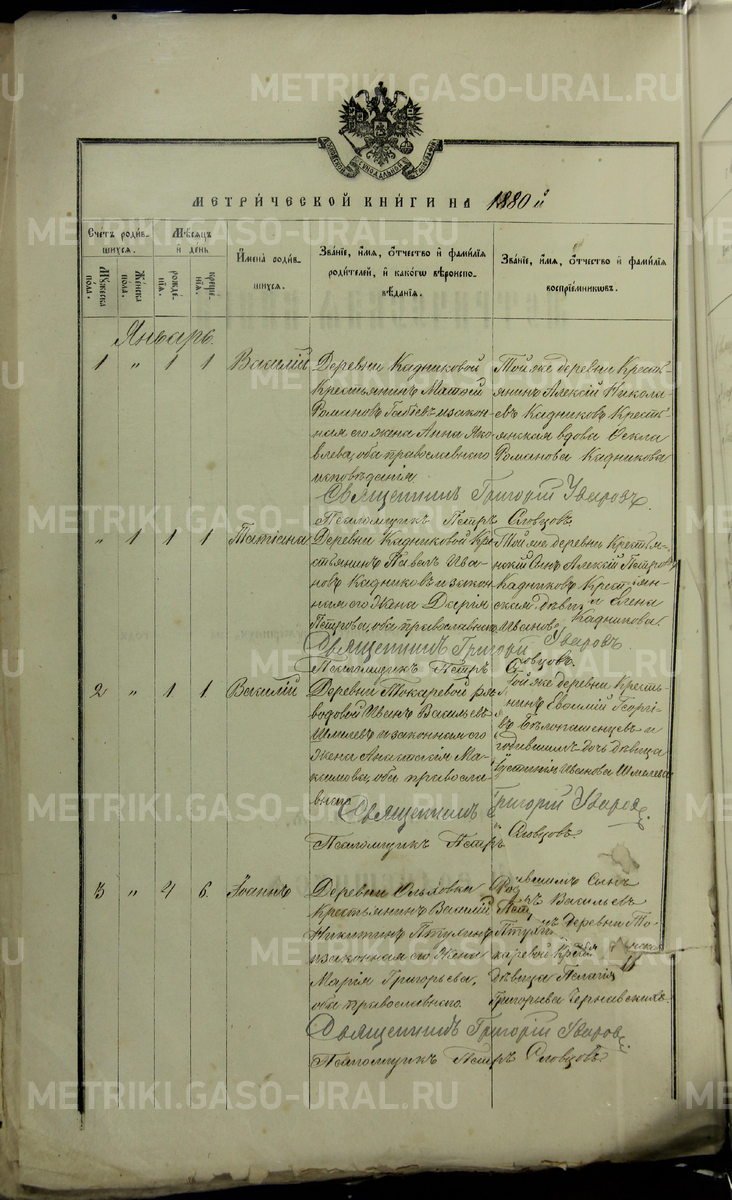 МЕТРИ́ЧЕСКОЙ КНИ́ГИ НА 1880 й
Счетъ роди́в-
шихся.
Мужеска
по́ла.
Же́нска
по́ла.
Мѣ́сяцъ
и́ де́нь
рожде-
нія.
креще-
нія.
И́мена̀ роди́в-
шихся.
Зва́нїе, и́мя, ѻ́тчество и́ фами́лїя
роди́телей, и́ како́гѡ вѣроиспо-
вѣ́данїя.
Зва́нїе, и́мя, ѻ́тчество и́ фами́лїя
воспрїе́мникѡвъ.
Январь.
1 " 1 1 Василій
Деревни Кадниковой
Крестьянинъ Матѳей
Романовъ и закон-
ная его жена Анна Яко-
влева, оба православнаго
исповѣданія.
Тойже деревни Кресть-
янинъ Алексій Никола-
евъ Кадниковъ Кресть-
янская вдова
Романова Кадникова
Священникъ Григорій Уваровъ
Псаломщикъ Петръ Словцовъ
" 1 1 1 Татіана
Деревни Кадниковой Кре-
стьянинъ Павелъ Ива-
новъ Кадниковъ и закон-
ная его жена Дарія
Петрова, оба православнаго
Тойже деревни Крестьян-
скій Сынъ Алексій Петровъ
Кадниковъ Крестьян-
ская дѣвица Елена
Иванова Кадникова.
Священникъ Григорій Уваровъ
Псаломщикъ Петръ Словцовъ.
2 " 1 1 Василій
Деревни Токаревой ря-
довой Иванъ Васильевъ
Шмелевъ и законная его
жена Анастасія Ма-
ксимова, оба правосла-
внаго
Тойже деревни Кресть-
янинъ Евѳимій Георгі-
евъ Бѣлопашенцевъ и
родившимъ дочь дѣвица
Устинія Иванова Шмелева
Священникъ Григорій Уваровъ
Псаломщикъ Петръ Словцовъ
3 " 4 6. Іоаннъ
Деревни Ольховка
Крестьянинъ Василій
Никитинъ Птухинъ
и законная его жена
Марія Григорьева,
оба православнаго.
Родившимъ Сынъ
Васильевъ
Деревни То-
каревой
дѣвица Пелагія
Григорьева Чернавскихъ
Священникъ Григорій Уваровъ
Псаломщикъ Петръ Словцовъ
METRIKI.GASO-URAL.RU